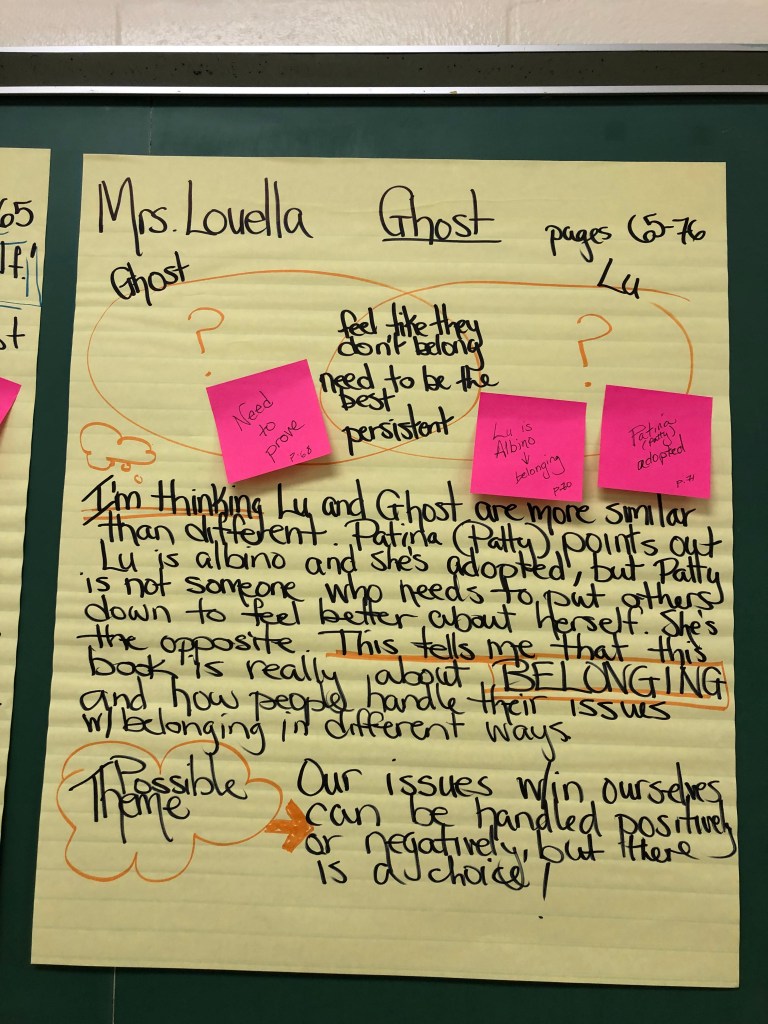 65
lf."
st
Mrs. Louella Ghost pages 65-76
Ghost
Lu
?
?
feel like they
don't belong
need to be the
best
persistent
Need
to
prove
p.68
Lu is
Albino
↓
belonging
p.70
Patina
(Patty)
adopted
p.71
I'm thinking Lu and Ghost are more similar
than different. Patina (Patty) points out
Lu is albino and she's adopted, but Patty
is not someone who needs to put others
down to feel better about herself. She's
the opposite. This tells me that this
book is really about BELONGING
and how people handle their issues
w/ belonging in different ways
Possible
Theme
Our issues w/in ourselves
can be handled positively
or negatively, but there
is a choice!